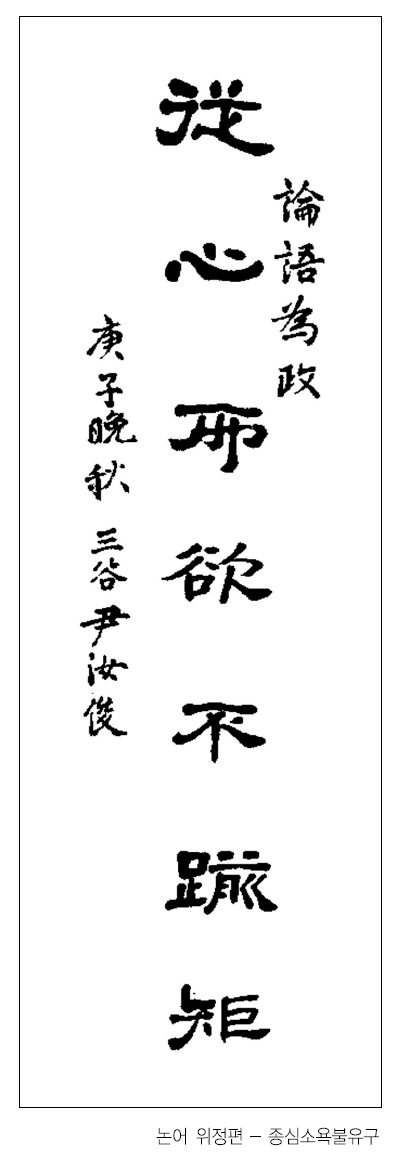 論語為政
從心所欲不踰矩
庚子晩秋 三谷 尹汝俊
논어 위정편 – 종심소욕불유구